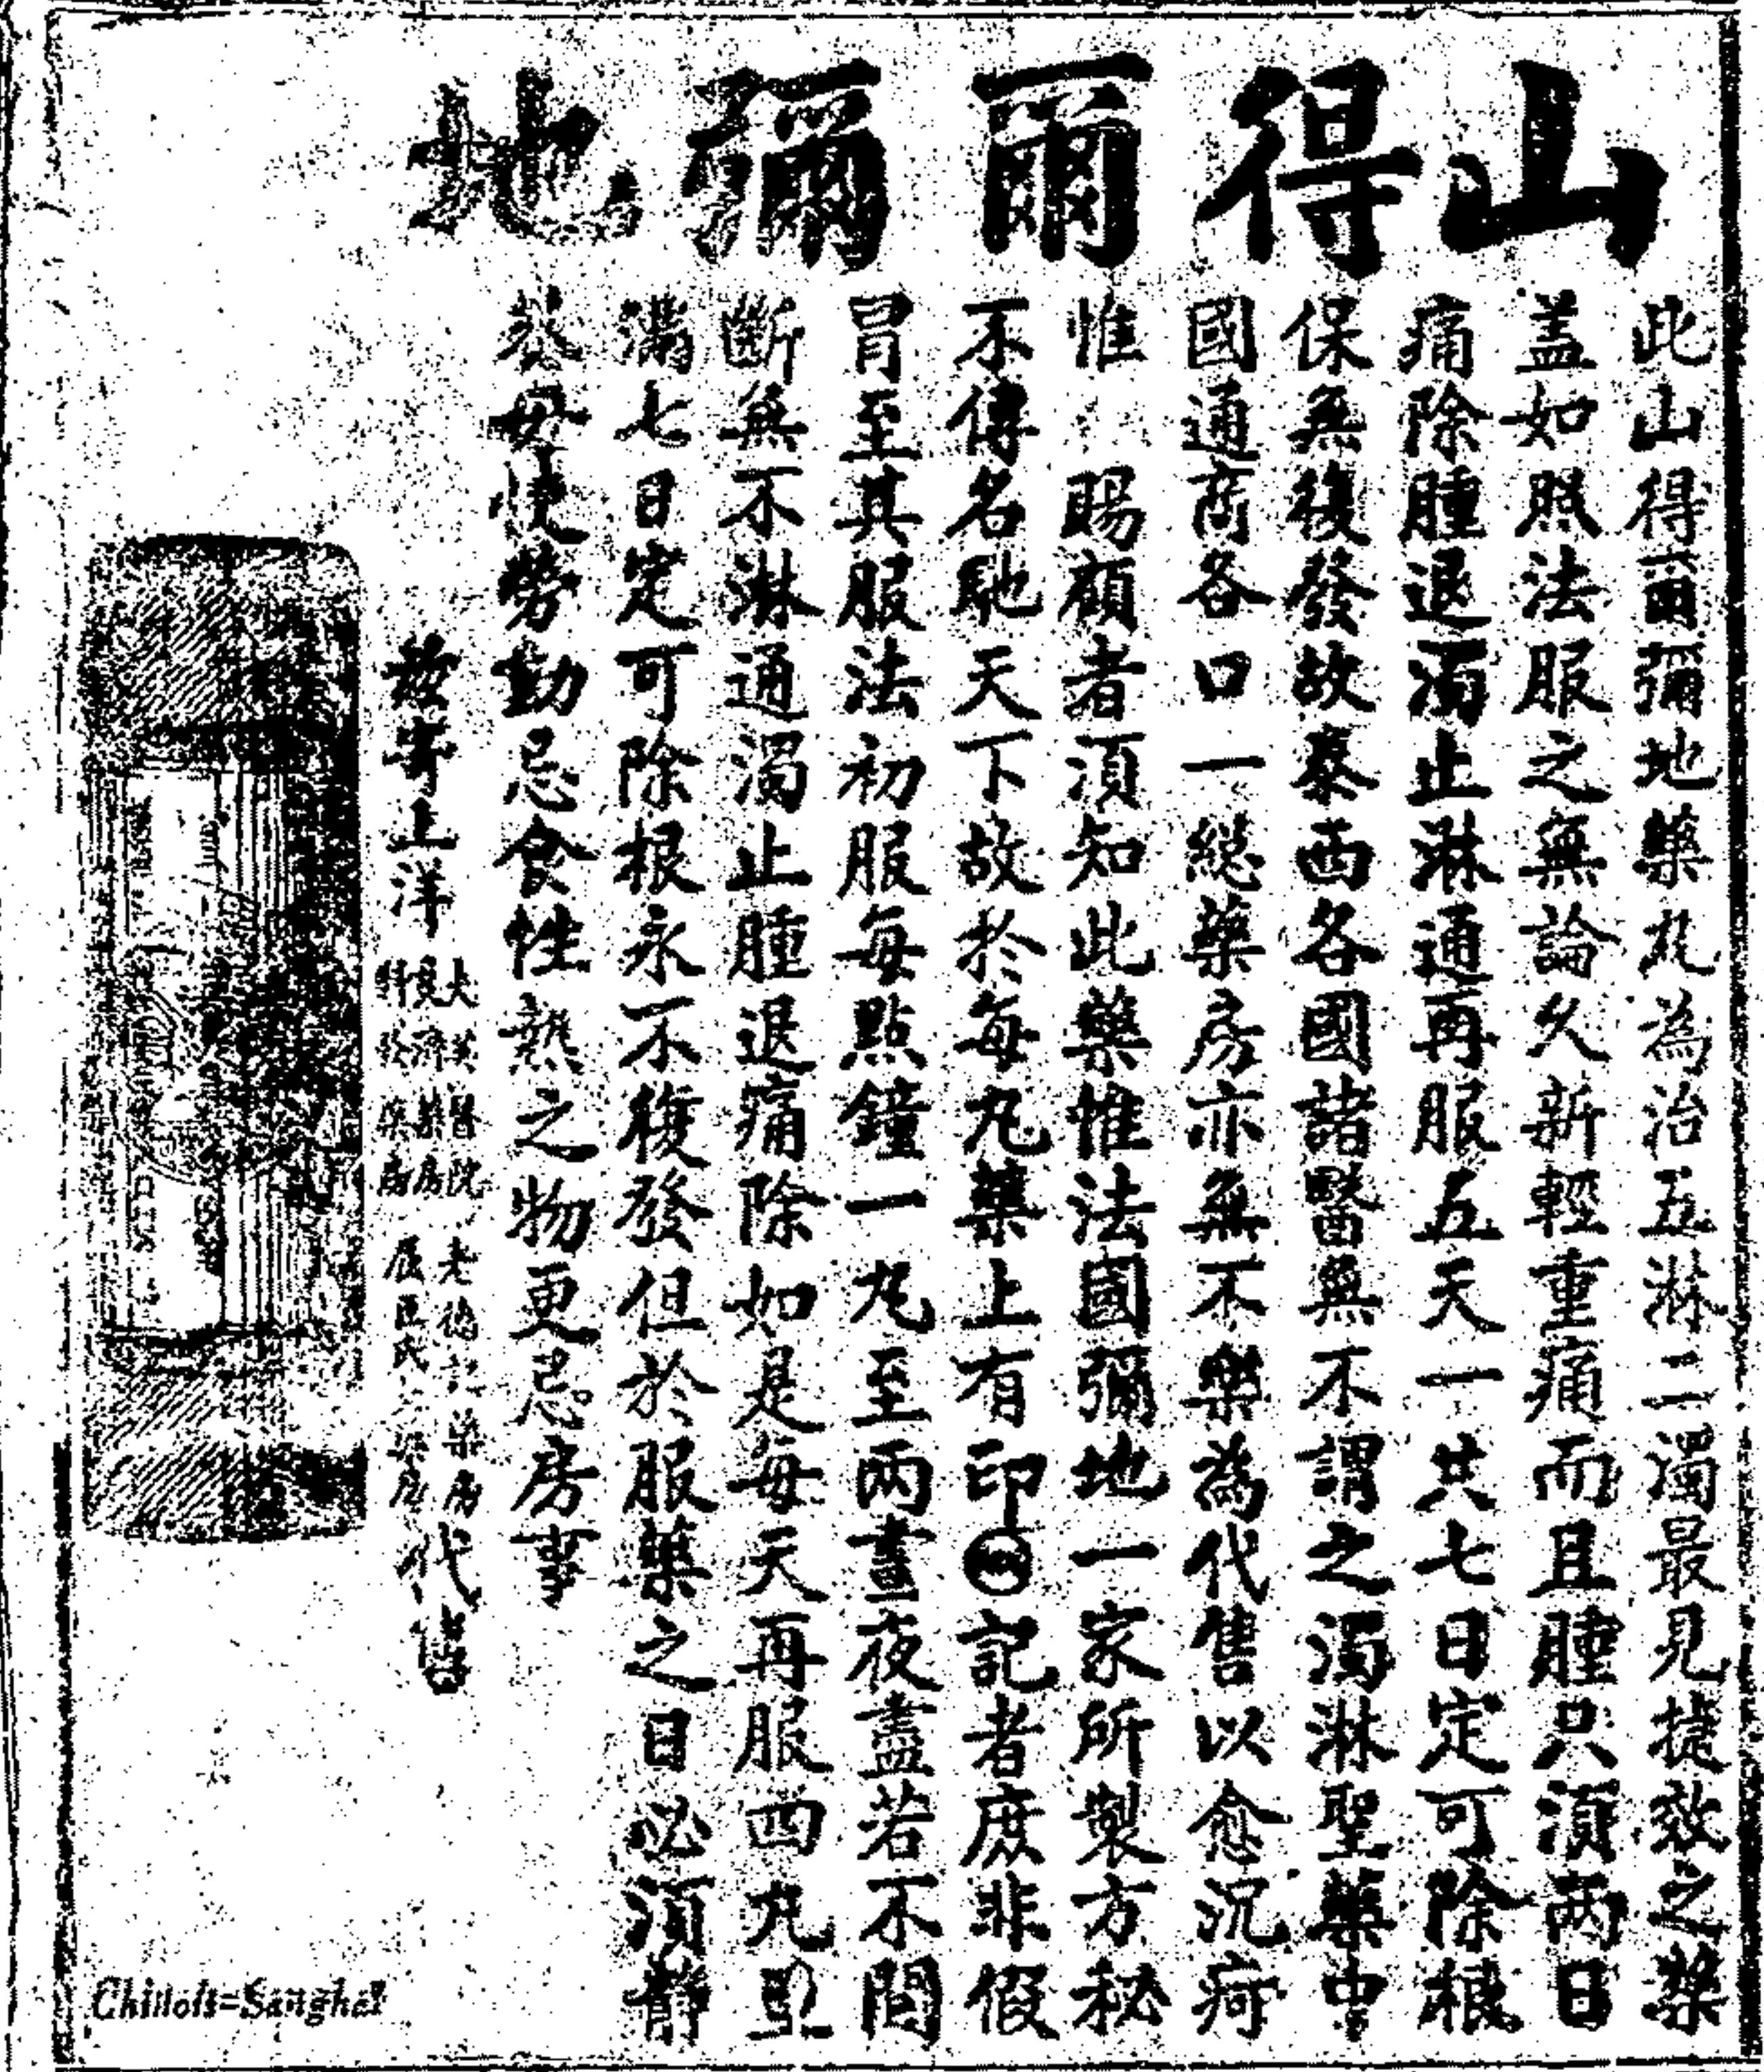 山得爾彌地
此山得爾彌地藥丸為治五淋二濁最見捷效之藥
盖如照法服之無論久新輕重痛而且腫只須兩日
痛除腫退濁止淋通再服五天一共七日定可除根
保無復發故泰西各國諸醫無不謂之濁淋聖藥中
國通商各口一總藥房亦無不樂為代售以愈沉疴
惟 賜顧者須知此藥惟法國彌地一家所製方秘
不傳名馳天下故於每丸藥上有印記者庶非假
冒至其服法初服每點鐘一丸至兩晝夜盡若不間
斷無不淋通濁止腫退痛除如是每天再服四丸
滿七日定可除根永不復發但於服藥之日必須靜
養毋使勞動忌食性熱之物更忌房事
茲寄上洋
大英醫院
藥房
老德記藥房
代售